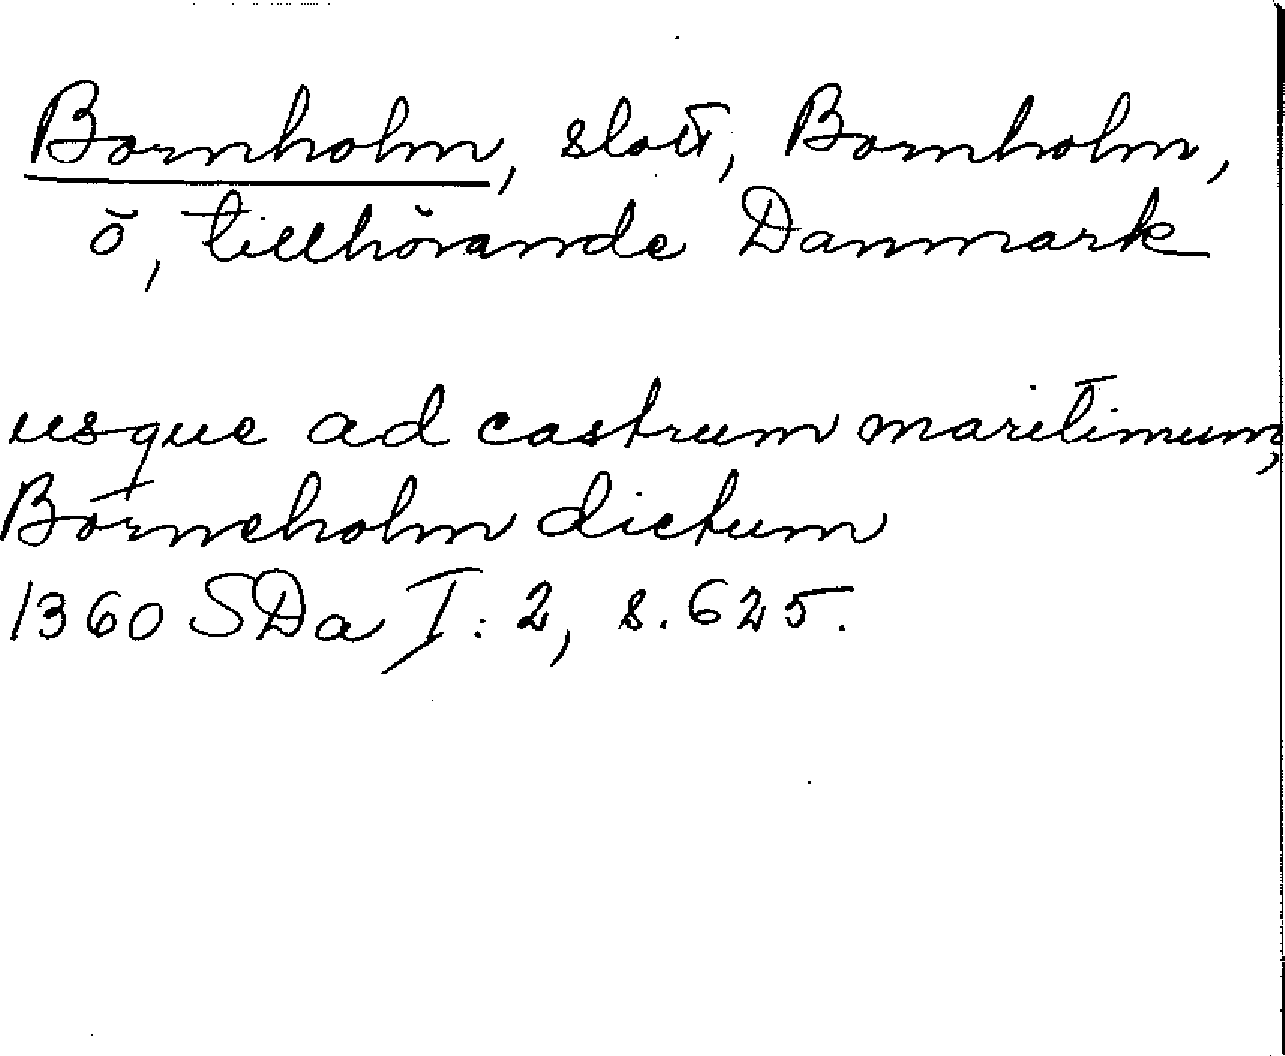 Bornholm, slott, Bornholm,
ö, tillhörande Danmark
usque ad castrum maritimum,
Børneholm dictum
1360 SDa I: 2, s. 625.